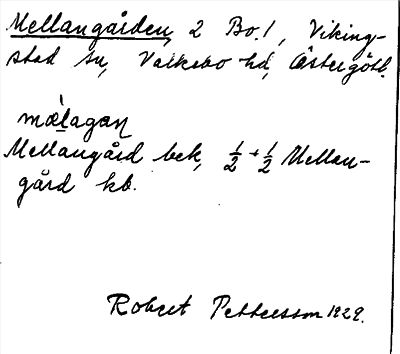 Mellangården, 2 Bo. 1, Viking-
stad sn, Valkebo hd, Östergötl.
mæ̀lagaɳ
Mellangård bek, ½ + ½ Mellan-
gård kb.
Robert Pettersson 1929.